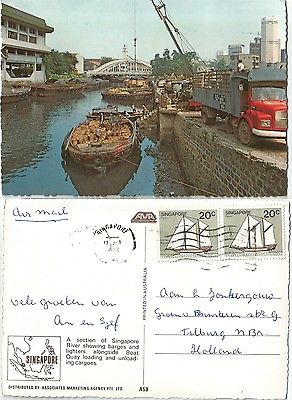 Air mail
SINGAPORE
SINGAPORE 20c
SINGAPORE 20c
vele groeten van
An en Sjef
PRINTED IN AUSTRALIA
Aan h. Jonkergouw
Tilburg NBr.
Holland
SINGAPORE
A section of Singapore
River showing barges and
lighters alongside Boat
Quay loading and unload-
ing cargoes.
DISTRIBUTED BY ASSOCIATED MARKETING AGENCY PTE. LTD.
A58